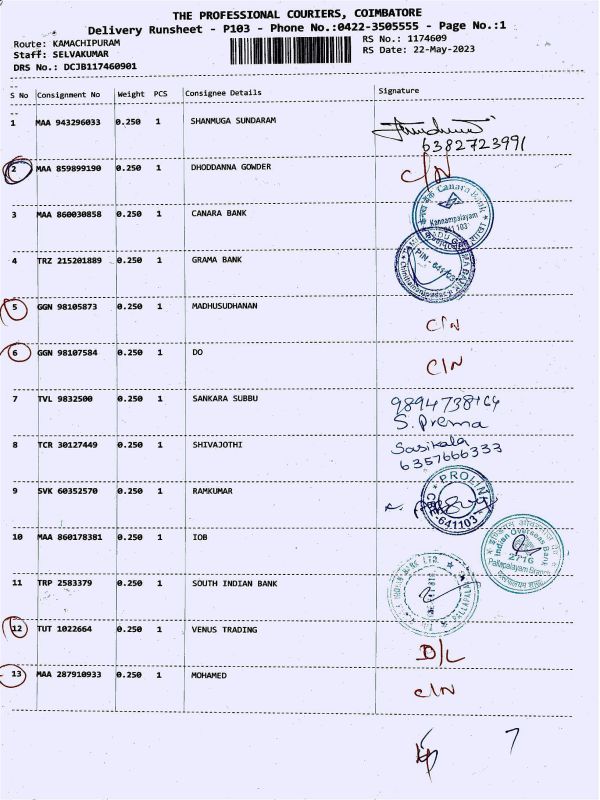 THE PROFESSIONAL COURIERS, COIMBATORE
Delivery Runsheet - P103 - Phone No.:0422-3505555 - Page No.:1
Route: KAMACHIPURAM
RS No.: 1174609
Staff: SELVAKUMAR
RS Date: 22-May-2023
DRS No.: DCJB117460901
S No Consignment No Weight PCS Consignee Details Signature
1 MAA 943296033 0.250 1 SHANMUGA SUNDARAM
6382723991
2 MAA 859899190 0.250 1 DHODDANNA GOWDER C/N
3 MAA 860030858 0.250 1 CANARA BANK
Canara Bank
Kannampalayam
641 103
4 TRZ 215201889 0.250 1 GRAMA BANK
PIN - 641103
5 GGN 98105873 0.250 1 MADHUSUDHANAN C/N
6 GGN 98107584 0.250 1 DO C/N
7 TVL 9832500 0.250 1 SANKARA SUBBU
S. Prema
8 TCR 30127449 0.250 1 SHIVAJOTHI Sasikala
6357666333
9 SVK 60352570 0.250 1 RAMKUMAR
PROLINE
CBE-641103
10 MAA 860178381 0.250 1 IOB
Indian Overseas Bank
2716
Pallapalayam Branch
11 TRP 2583379 0.250 1 SOUTH INDIAN BANK
12 TUT 1022664 0.250 1 VENUS TRADING D/L
13 MAA 287910933 0.250 1 MOHAMED C/N
7